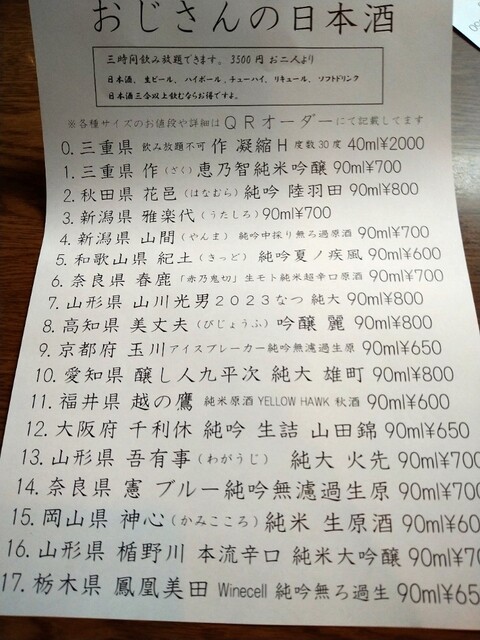 おじさんの日本酒
三時間飲み放題できます。3500円 お二人より
日本酒、生ビール、ハイボール、チューハイ、リキュール、ソフトドリンク
日本酒三合以上飲むならお得ですよ。
※各種サイズのお値段や詳細はQRオーダーにて記載してます
0. 三重県 飲み放題不可 作 凝縮H 度数30度 40ml¥2000
1. 三重県 作(ざく)恵乃智純米吟醸 90ml¥700
2. 秋田県 花邑(はなむら)純吟 陸羽田 90ml¥800
3. 新潟県 雅楽代(うたしろ)90ml¥700
4. 新潟県 山間(やんま) 純吟中採り無ろ過原酒 90ml¥700
5. 和歌山県 紀土(きっど) 純吟夏ノ疾風 90ml¥600
6. 奈良県 春鹿「赤乃鬼切」生モト純米超辛口原酒 90ml¥700
7. 山形県 山川光男2023なつ 純大 90ml¥800
8. 高知県 美丈夫(びじょうふ)吟醸 麗 90ml¥800
9. 京都府 玉川アイスブレーカー純吟無濾過生原 90ml¥650
10. 愛知県 醸し人九平次 純大 雄町 90ml¥800
11. 福井県 越の鷹 純米原酒 YELLOW HAWK 秋酒 90ml¥600
12. 大阪府 千利休 純吟 生詰 山田錦 90ml¥650
13. 山形県 吾有事(わがうじ) 純大 火先 90ml¥700
14. 奈良県 憲 ブルー純吟無濾過生原 90ml¥700
15. 岡山県 神心(かみこころ)純米 生原酒 90ml¥60
16. 山形県 楯野川 本流辛口 純米大吟醸 90ml¥70
17. 栃木県 鳳凰美田 Winecell 純吟無ろ過生 90ml¥65